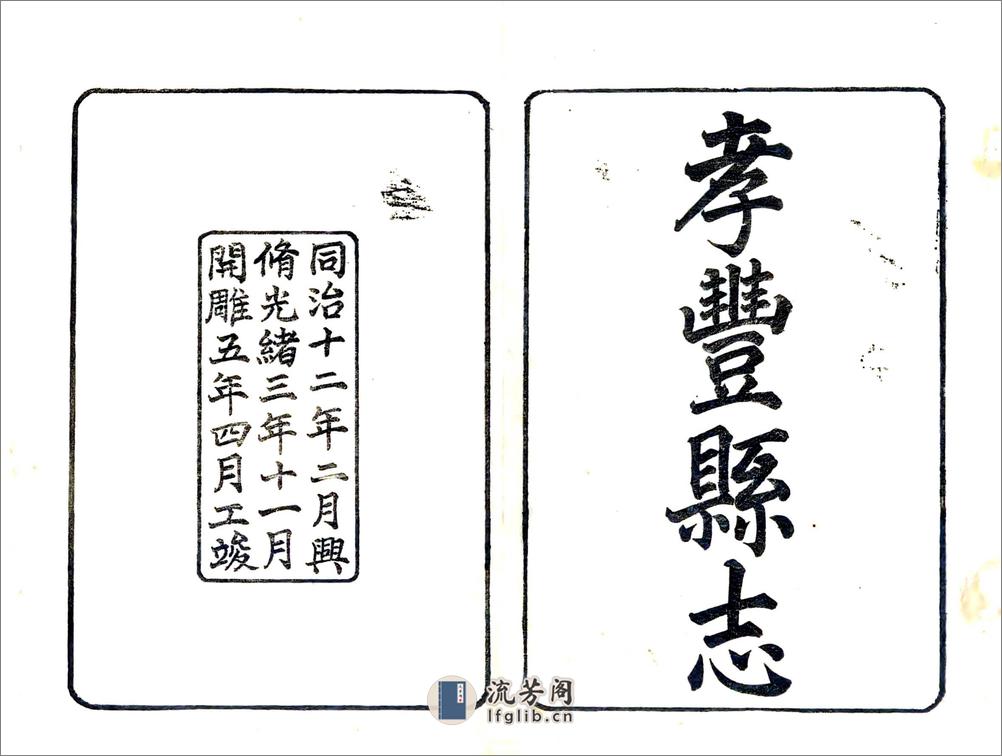 孝豐縣志
同治十二年二月興
脩光緒三年十一月
開雕五年四月工竣
流芳阁
lfglib.cn